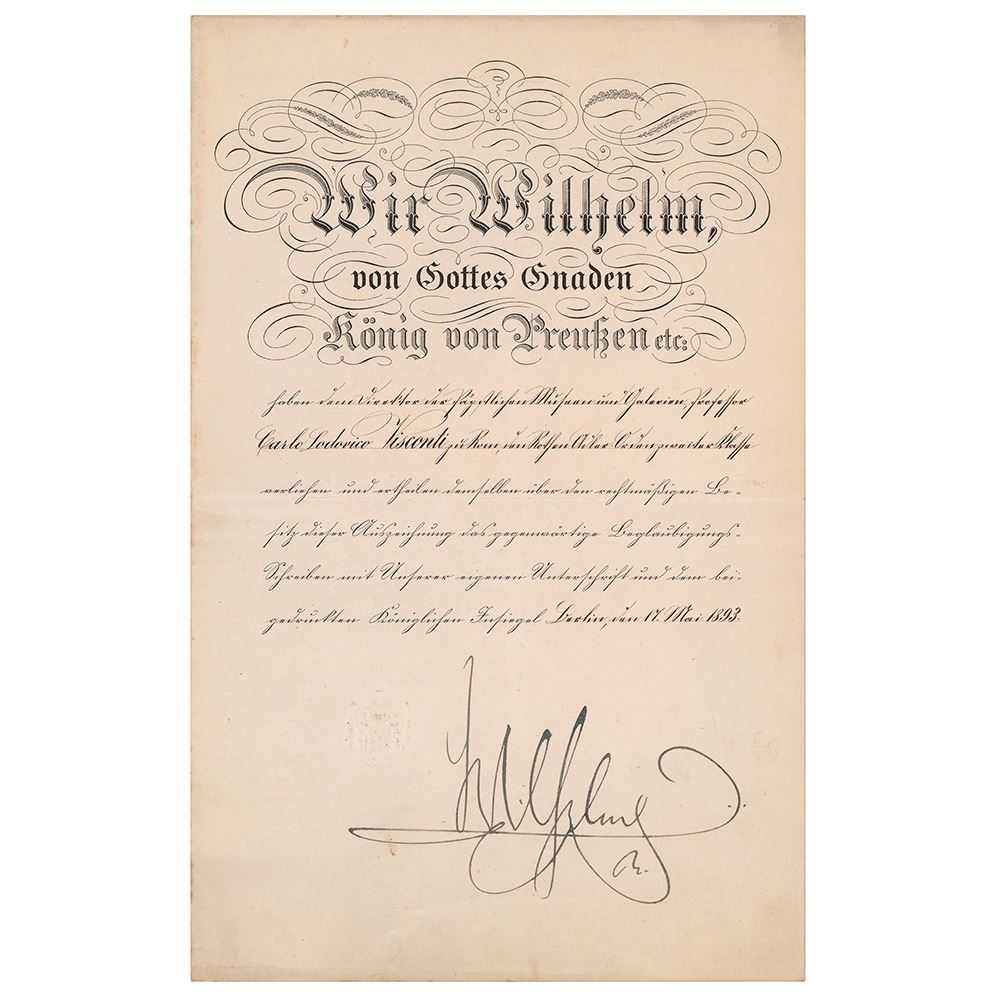 Wir Wilhelm,
von Gottes Gnaden
König von Preußen etc:
haben dem Direktor der Päpstlichen Museen und Galerien, Professor
Carlo Lodovico Visconti zu Rom, den Rothen Adler-Orden zweiter Klasse
verliehen und ertheilen demselben über den rechtmäßigen Be-
sitz dieser Auszeichnung das gegenwärtige Beglaubigungs-
Schreiben mit Unserer eigenen Unterschrift und dem bei-
gedruckten Königlichen Insiegel Berlin, den 17. Mai 1893.
Wilhelm
R.